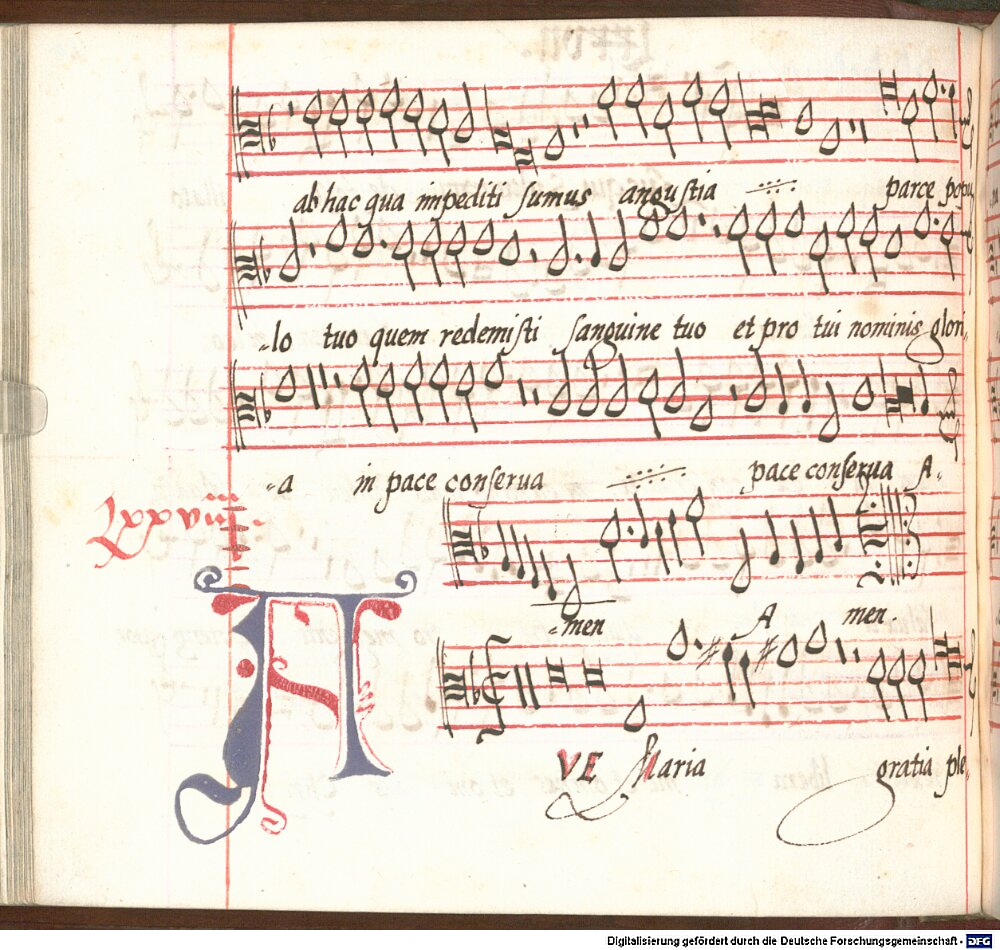 ab hac qua impediti ſumus anguſtia parce popu
-lo tuo quem redemiſti ſanguine tuo et pro tui nominis glori
-a in pace conſerua pace conſerua A-
-men A men.
VE Maria gratia ple
Digitalisierung gefördert durch die Deutsche Forschungsgemeinschaft - DFG